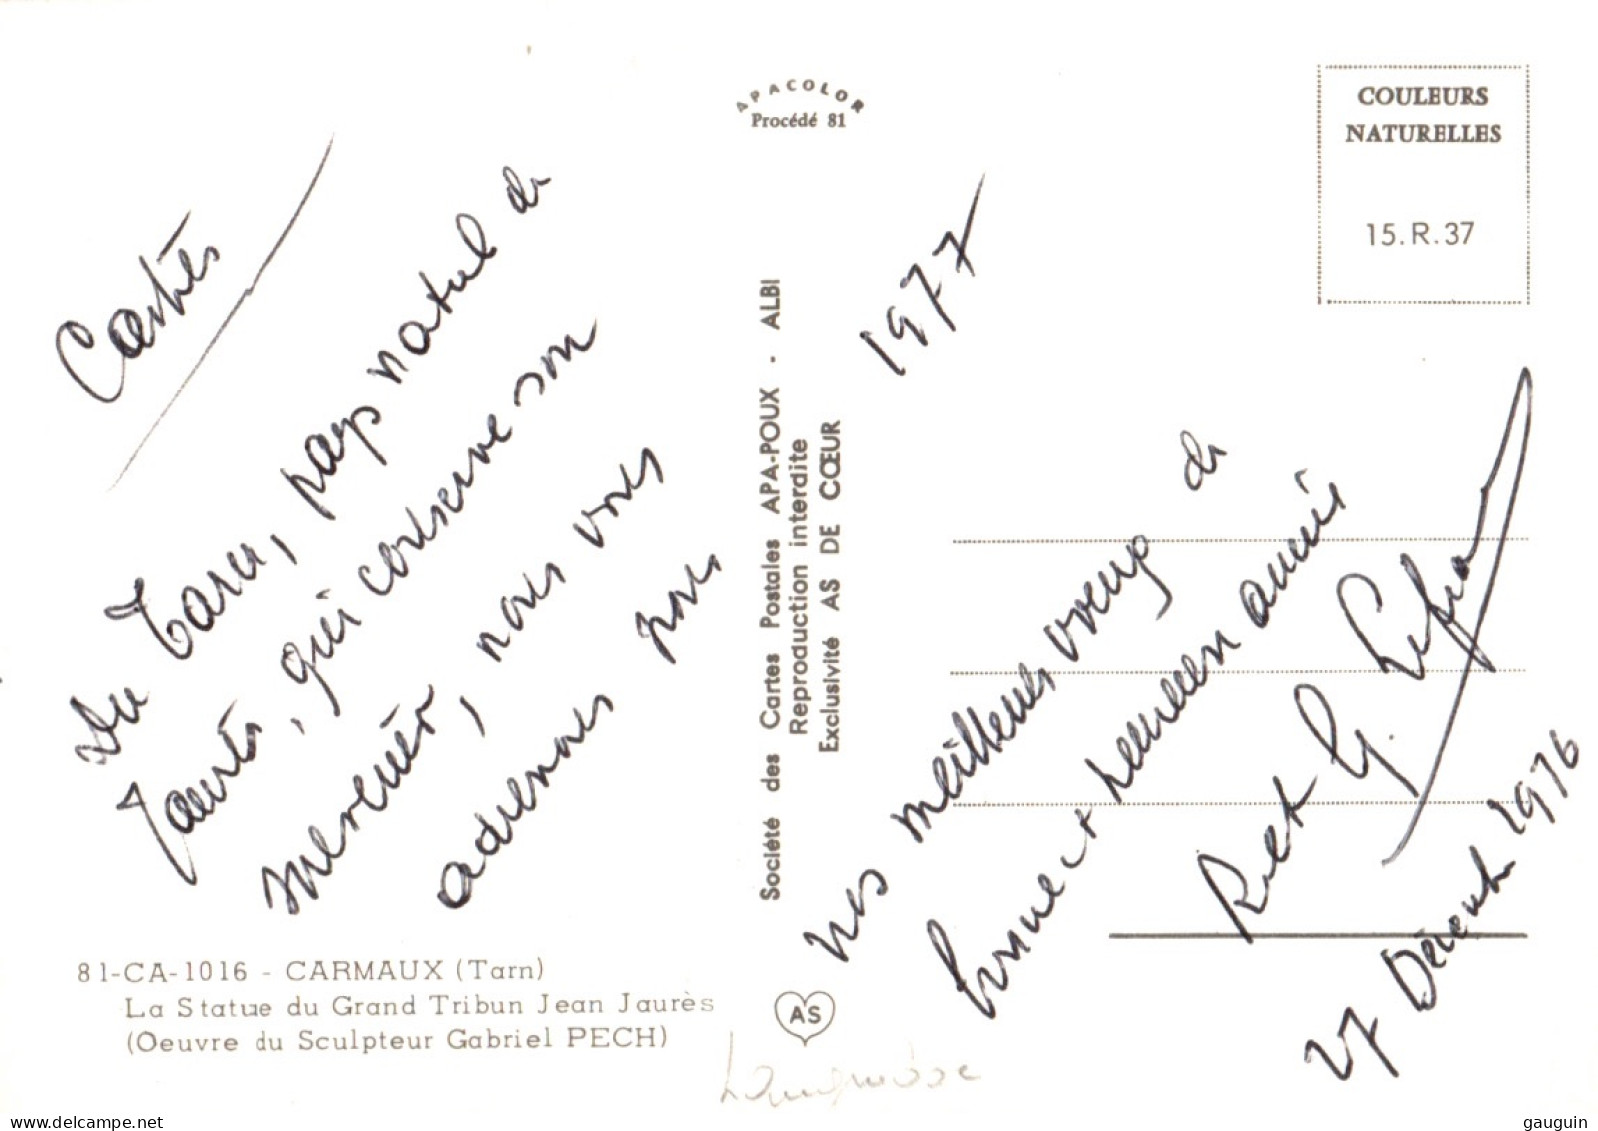 Castres
Du Tarn, pays natal de
Jaurès, qui conserve son
souvenir, nous vous
adressons nos
81-CA-1016 - CARMAUX (Tarn)
La Statue du Grand Tribun Jean Jaurès
(Oeuvre du Sculpteur Gabriel PECH)
APACOLOR
Procédé 81
Société des Cartes Postales APA-POUX - ALBI
Reproduction interdite
Exclusivité AS DE CŒUR
AS
COULEURS
NATURELLES
15.R.37
1977
nos meilleurs vœux de
bonne et heureuse année
et G.
27 Décembre 1976
Languedoc
gauguin